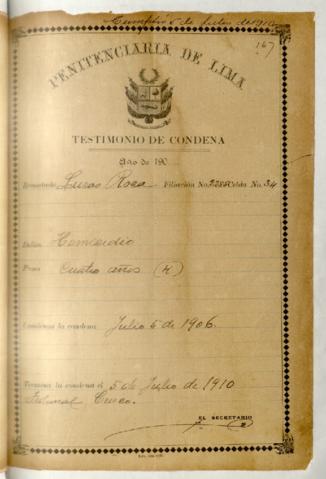 Cumplió 5 de Julio de 1910
167
PENITENCIARIA DE LIMA
TESTIMONIO DE CONDENA
Año de 190
Rematado Lucas Roca Filiación No. 2285 Celda No. 34
Delito Homicidio
Pena Cuatro años (4)
Comienza la condena Julio 5 de 1906.
Termina la condena el 5 de Julio de 1910
Tribunal Cuzco.
EL SECRETARIO